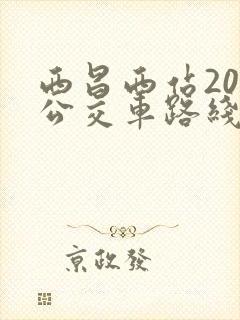 西昌西佔20
公交車路綫
京政發